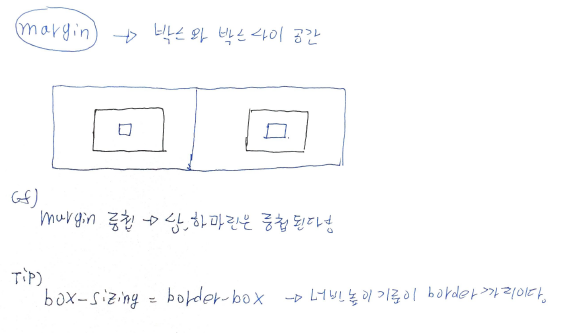 margin → 박스와 박스 사이 공간
cf)
margin 중첩 → 상,하 마진은 중첩된다.
TiP)
box-sizing = border-box → 너비 높이 기준이 border 까지이다.